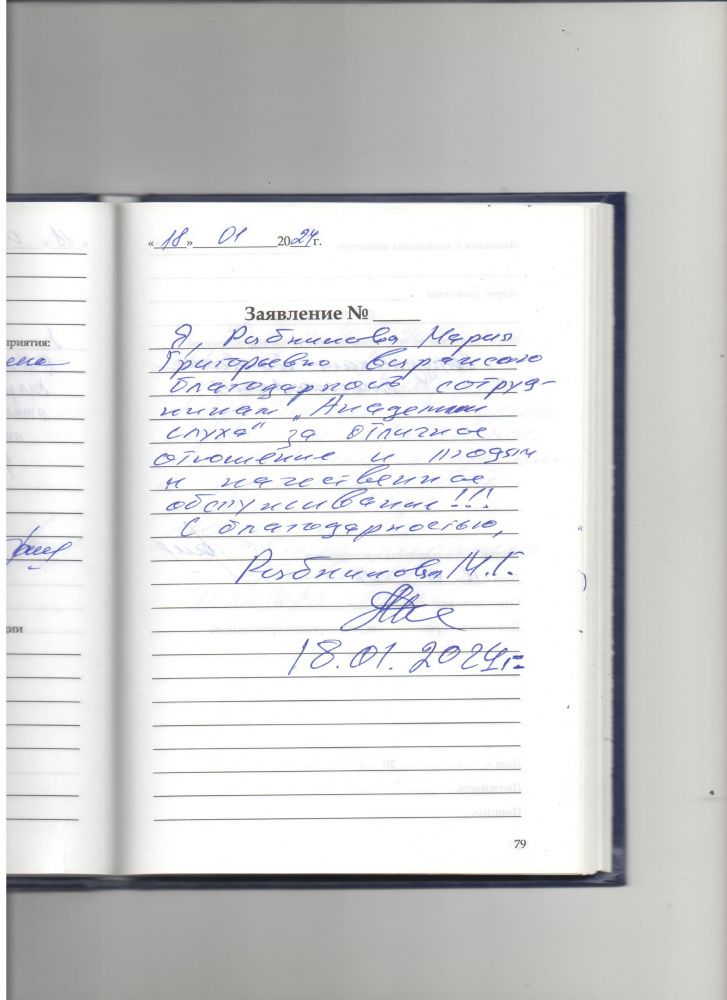 « 18 » 01 2024 г.
Заявление №
Я, Рыбникова Мария
Григорьевна выражаю
благодарность сотруд-
никам „Академии
слуха" за отличное
отношение к людям
и качественное
обслуживание!!!
С благодарностью,
Рыбникова М.Г.
18.01.2024г.
79
приятия: